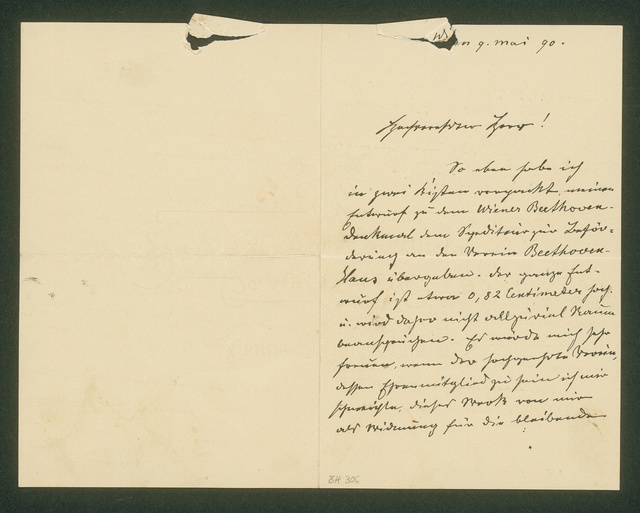 Wien 9. Mai 90.
Hochverehrter Herr!
So eben habe ich
in zwei Kisten verpackt, meinen
Entwurf zu dem Wiener Beethoven-
denkmal dem Spediteur zur Beför-
derung an den Verein Beethoven-
Haus übergeben. Der ganze Ent-
wurf ist etwa 0,82 Centimeter hoch
u. wird daher nicht allzuviel Raum
beanspruchen. Es würde mich sehr
freuen, wenn der hochgeehrte Verein,
dessen Ehrenmitglied zu sein ich mir
schmeichle, dieses Werk von mir
als Widmung für die bleibende
BH 306